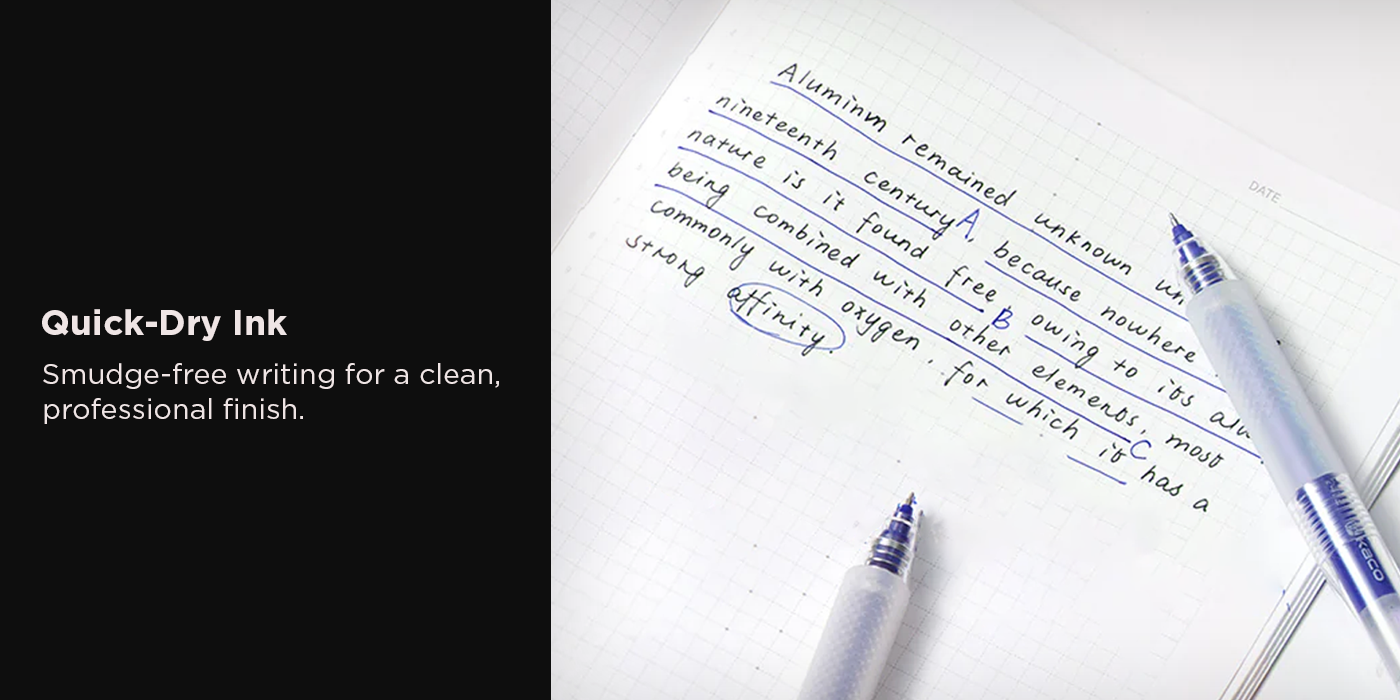 Quick-Dry Ink
Smudge-free writing for a clean,
professional finish.
DATE
Aluminm remained unknown
nineteenth century A, because nowhere
nature is it found free, B owing to its
being combined with other elements, C most
commonly with oxygen, for which it has a
strong affinity.
kaco